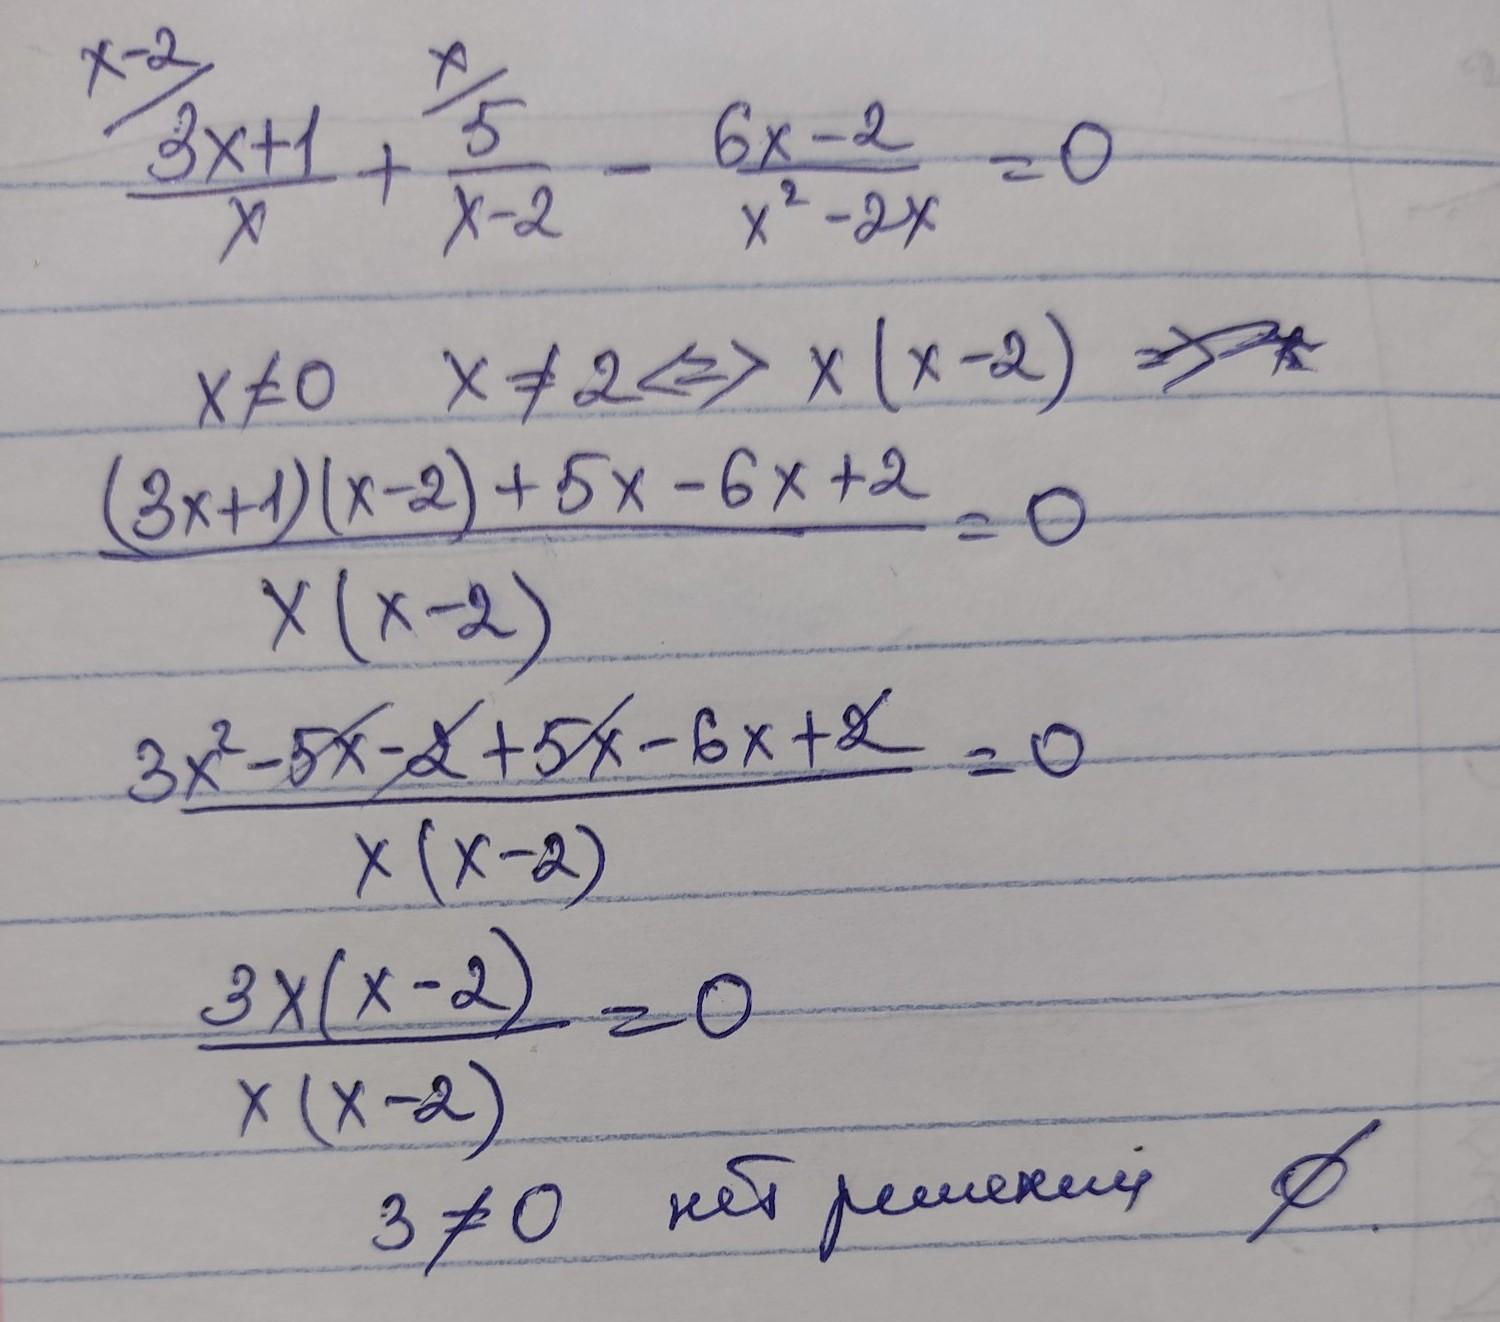 x-2/ x/
(3x+1)/x + 5/(x-2) - (6x-2)/(x²-2x) = 0
x≠0 x≠2 <=> x(x-2) =>
((3x+1)(x-2)+5x-6x+2)/(x(x-2)) = 0
(3x²-5x-2+5x-6x+2)/(x(x-2)) = 0
(3x(x-2))/(x(x-2)) = 0
3≠0 нет решений ∅